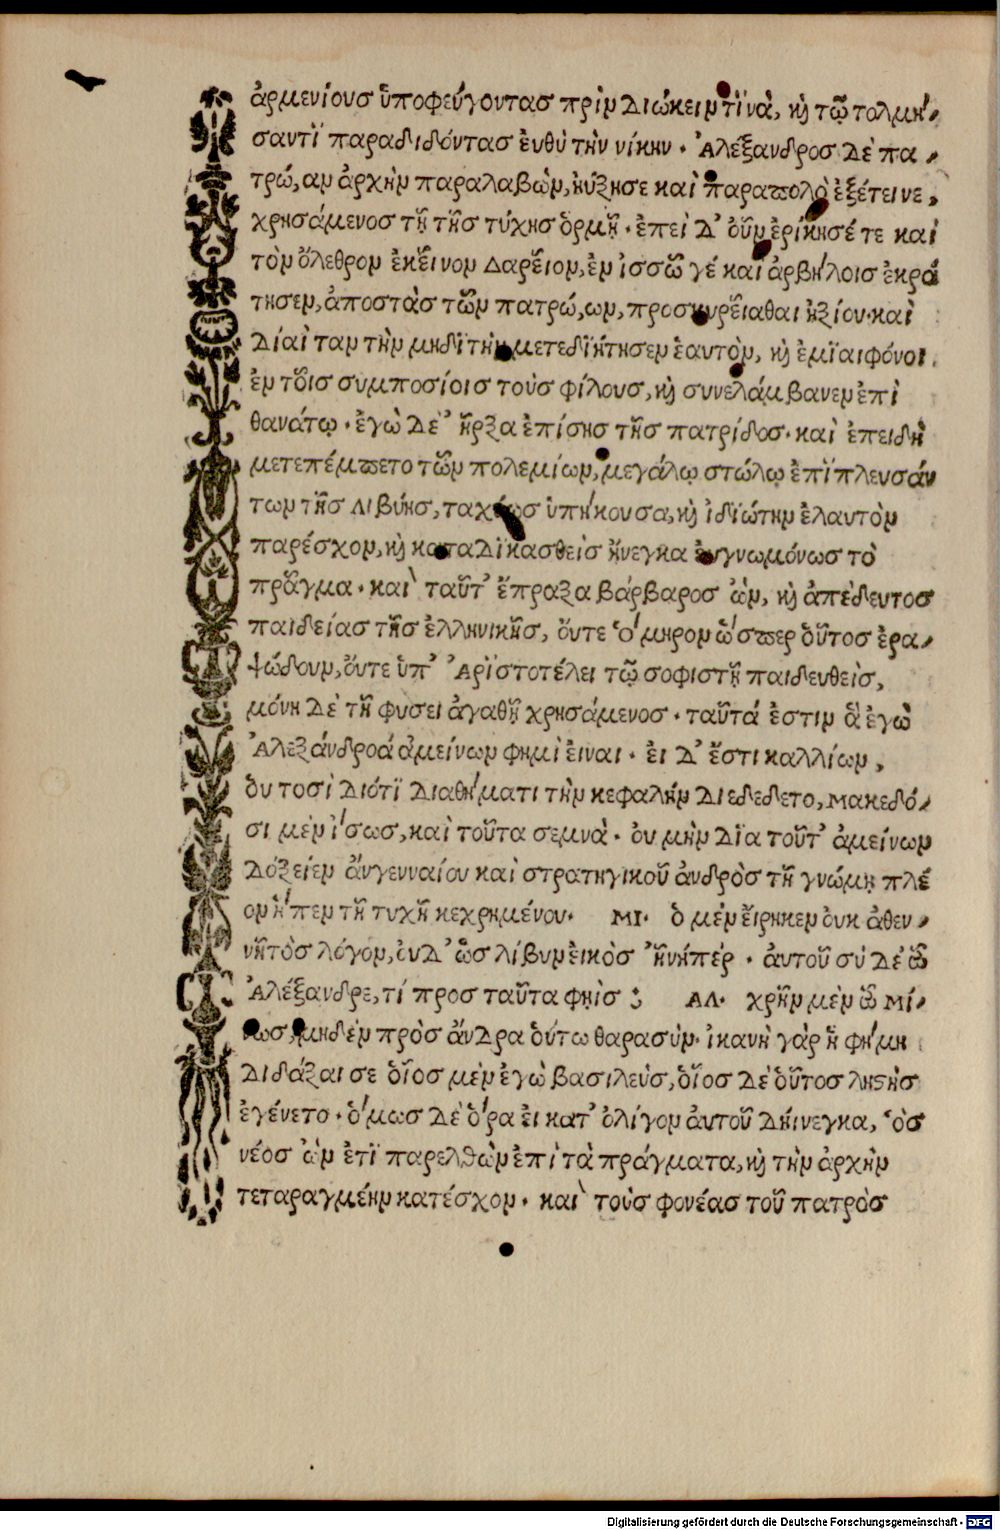 ἀρμενίους ὑποφεύγοντας πρὶν διώκειν τϊνὰ, καὶ τῷ τολμή-
σαντϊ παραδιδόντας ἐυθὺ τὴν νίκην. Ἀλέξανδρος δὲ πα-
τρώ,αν ἀρχὴν παραλαβὼν, ηὔξησε καὶ παραπολὺ ἐξέτεινε,
χρησάμενος τῇ τῆς τύχης ὁρμῇ. ἐπεὶ δ' οὖν ἐνίκησέ τε καὶ
τὸν ὄλεθρον ἐκεῖνον Δαρεῖον, ἐν ἰσσῶ γέ καὶ ἀρβήλοις ἐκρά
τησεν, ἀποστὰς τῶν πατρώ,ων, προσκυνεῖσθαι ἠξίου. καὶ
δίαὶταν τὴν μηδϊτὴν μετεδιῄτησεν ἑαυτὸν, καὶ ἐμϊαιφόνει
ἐν τοῖς συμποσίοις τοὺς φίλους, καὶ συνελάμβανεν ἐπὶ
θανάτῳ. ἐγὼ δὲ' ἦρξα ἐπίσης τῆς πατρίδος. καὶ ἐπειδὴ
μετεπέμπετο τῶν πολεμίων, μεγάλῳ στώλῳ ἐπϊπλευσάν
των τῆς λιβύης, ταχέως ὑπήκουσα, καὶ ἰδϊώτην ἐλαυτὸν
παρέσχον, καὶ καταδϊκασθεὶς ἤνεγκα ἐυγνωμόνως τὸ
πρᾶγμα. καὶ ταῦτ' ἔπραξα βάρβαρος ὢν, καὶ ἀπέδευτος
παιδείας τῆς ἐλληνικῆς, ὄυτε Ὅμηρον ὥσπερ ὁῦτος ἐρα-
ψώδουν, ὄυτε ὑπ' Ἀρϊστοτέλει τῷ σοφιστῇ παιδευθεὶς,
μόνη δὲ τῆ φυσει ἀγαθῇ χρησάμενος. ταῦτά ἐστιν ἃ ἐγὼ
Ἀλεξάνδροά ἀμείνων φημὶ ἐίναι. ἐι δ' ἔστι καλλίων,
ὁυτοσὶ διότϊ διαθήματι τὴν κεφαλὴν διεδεδετο, Μακεδό-
σι μὲν ἴσως, καὶ τοῦτα σεμνὰ. ὀυ μὴν δϊα τοῦτ' ἀμείνων
δόξειεν ἂν γενναίου καὶ στρατηγικοῦ ἀνδρὸς τῆ γνώμῃ πλέ
ον ἤπερ τῆ τυχῆ κεχρημένου. ΜΙ. ὁ μὲν ἔιρηκεν ὀυκ ἀθεν-
νῆτὸς λόγον, ὀυδ' ὧς λίβυν ἐικὸς ἦνήπέρ. ἀυτοῦ σὺ δὲ ὦ
Ἀλέξανδρε, τί προς ταῦτα φῂς ; ΑΛ. χρῆν μὲν ὦ Μί-
νως, μηδὲν πρὸς ἄνδρα ὁύτω θαρασὺν. ἱκανὴ γὰρ ἡ φήμη
διδάξαι σε ὁῖος μὲν ἐγὼ βασιλεὺς, ὁῖος δὲ ὁῦτος ληστὴς
ἐγένετο. ὅμως δὲ ὅρα ἐι κατ' ὀλίγον ἀυτοῦ διήνεγκα, ὃς
νέος ὢν ἐτϊ παρελθὼν ἐπὶ τὰ πράγματα, καὶ τὴν ἀρχὴν
τεταραγμένην κατέσχον. καὶ τοὺς φονέας τοῦ πατρὸς
Digitalisierung gefördert durch die Deutsche Forschungsgemeinschaft - DFG